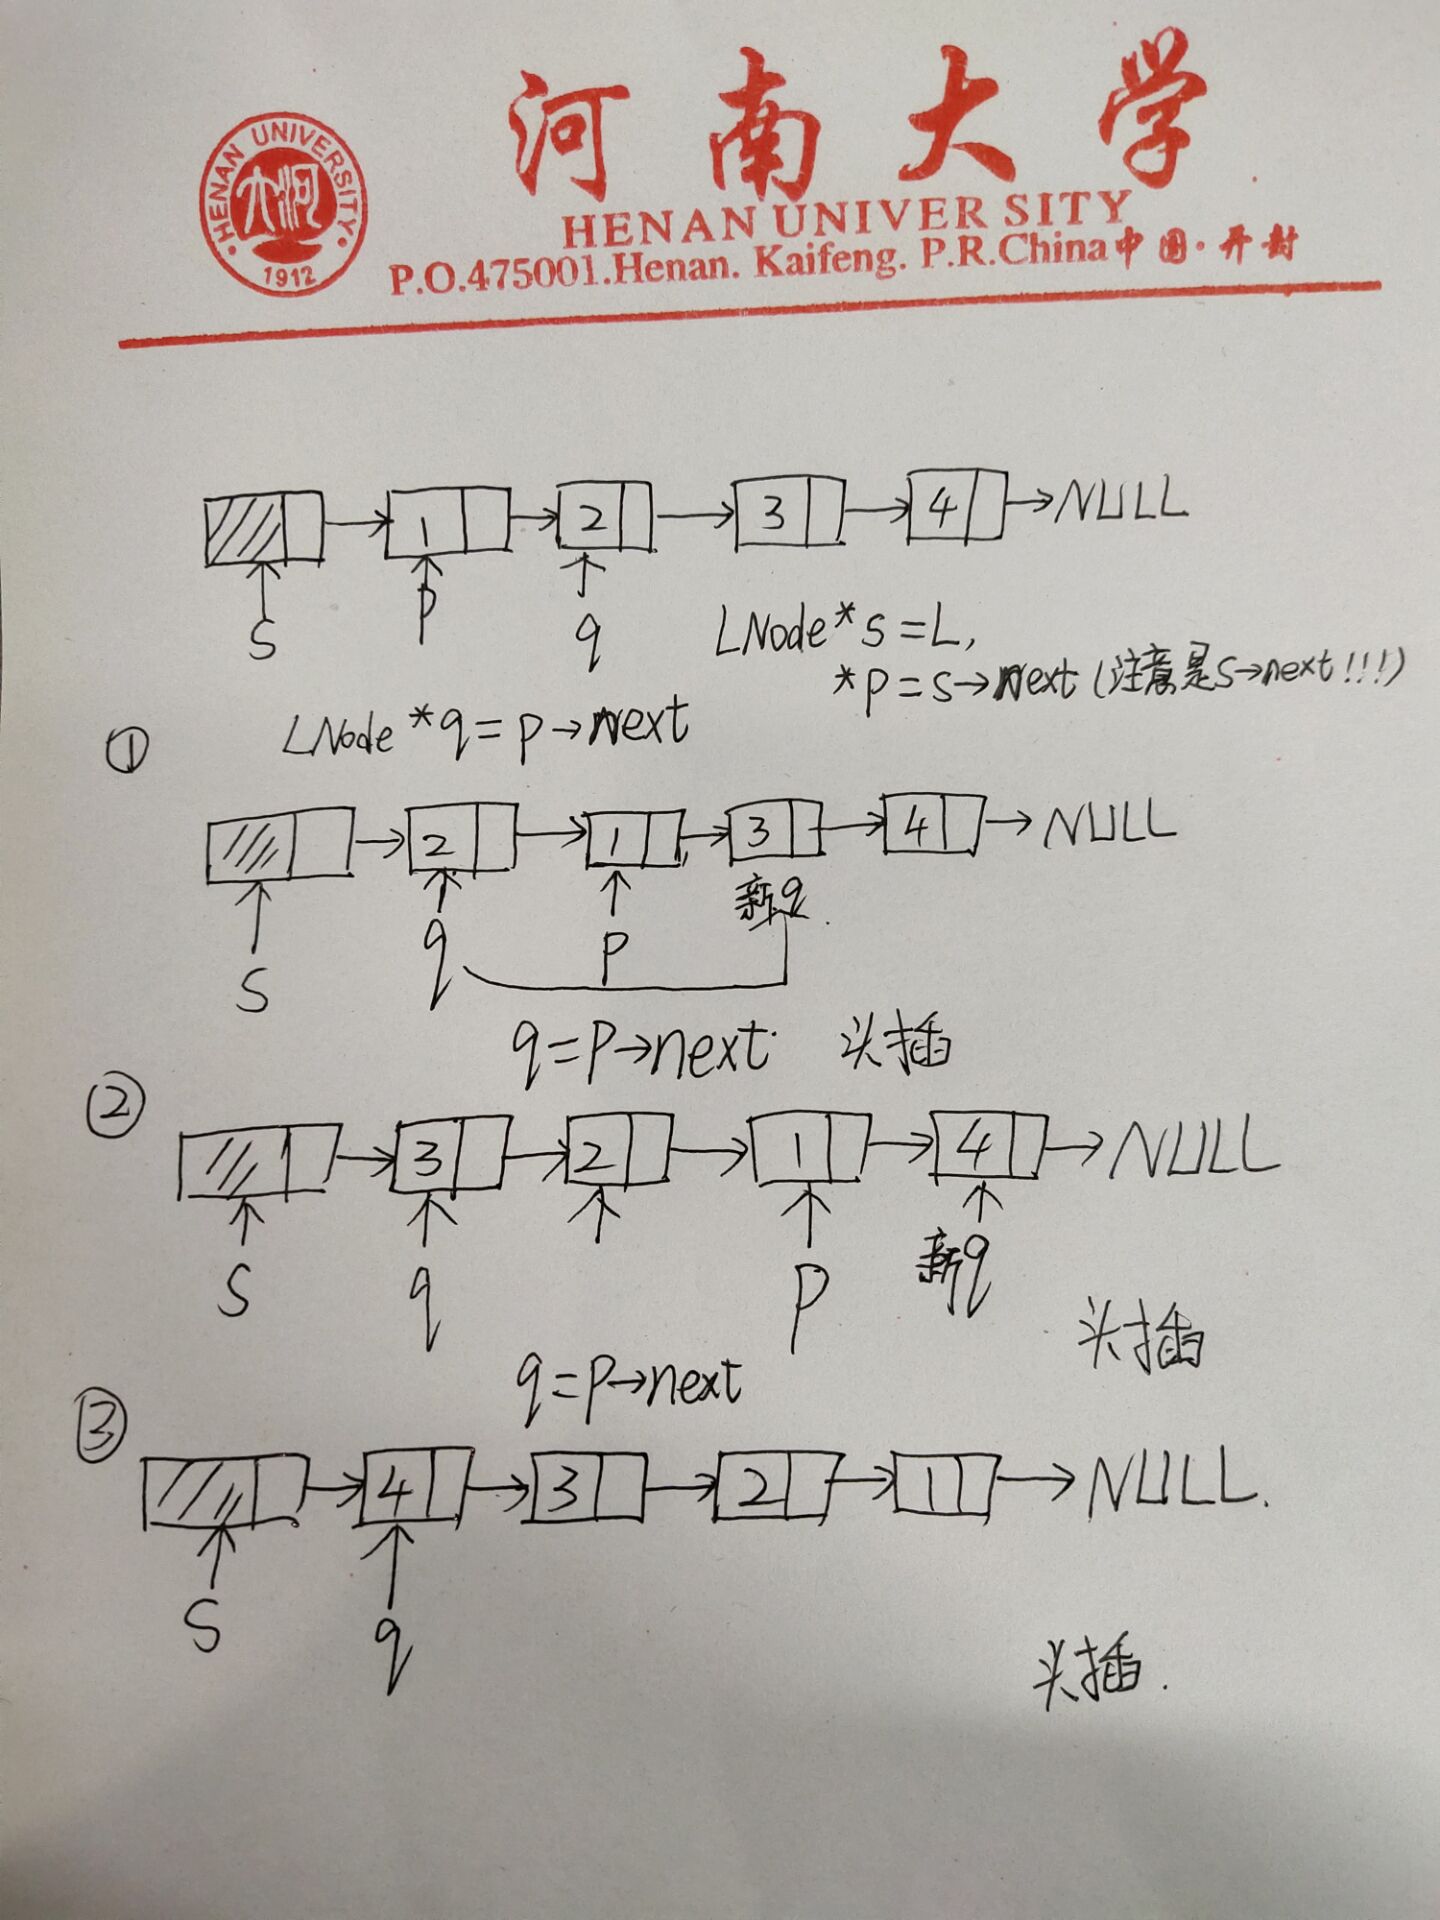 河南大学
HENAN UNIVERSITY
1912
HENAN UNIVERSITY
P.O.475001.Henan. Kaifeng. P.R.China中国·开封
1 2 3 4 NULL
s p q
LNode*s=L,
*p=s→next(注意是s→next!!!)
① LNode*q=p→next
2 1 3 4 NULL
s q p 新q
q=p→next 头插
②
3 2 1 4 NULL
s q p 新q
头插
q=p→next
③
4 3 2 1 NULL.
s q
头插.